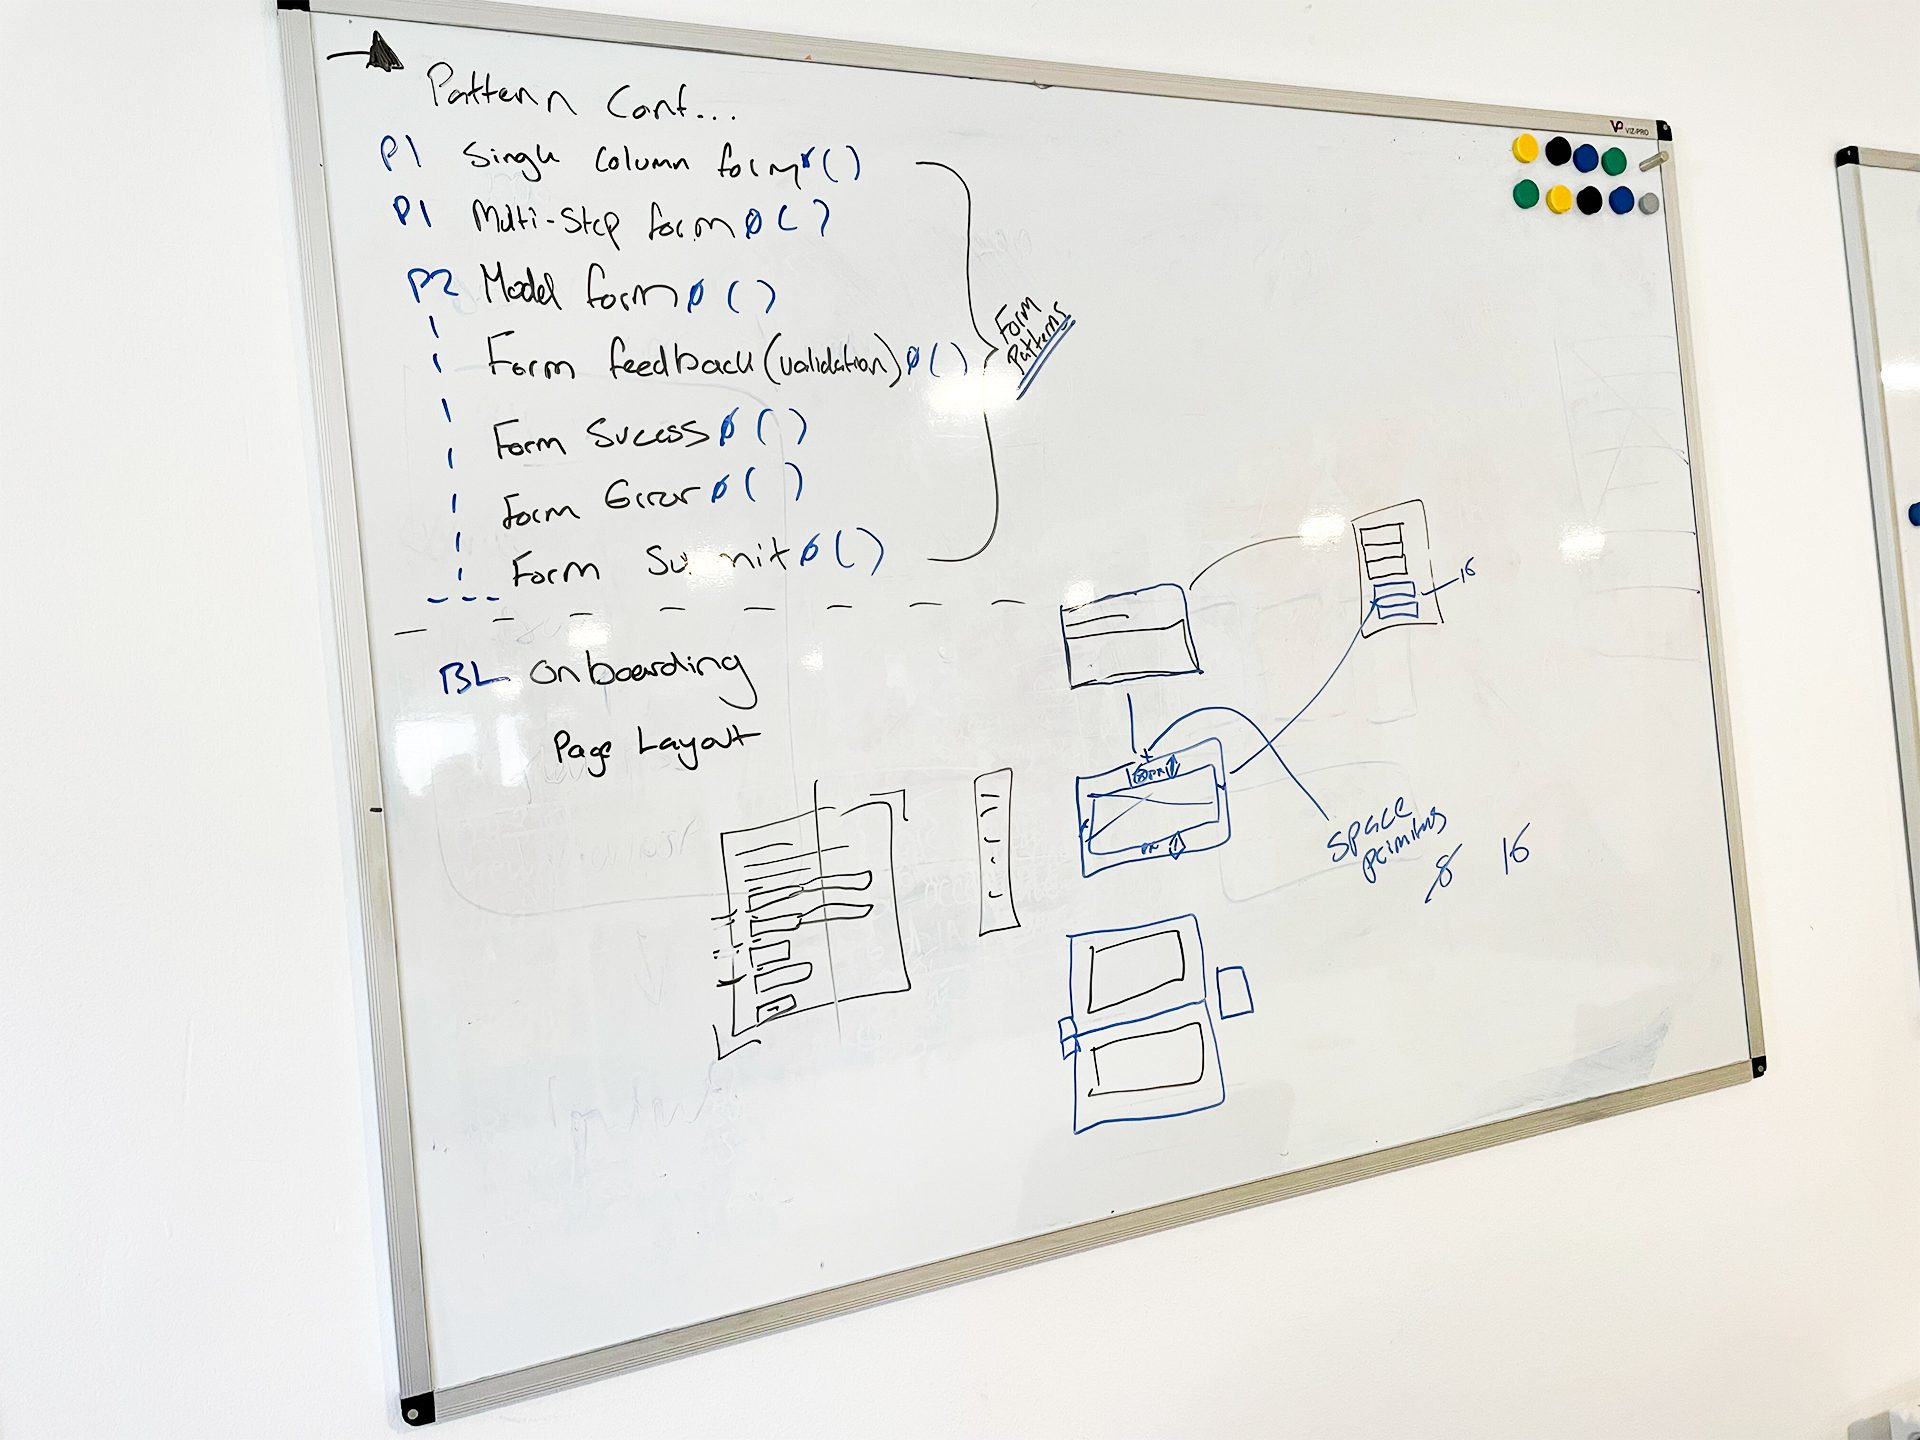 Pattern Cont...
P1 Single Column form Ø ( )
P1 Multi-Step form Ø ( )
P2 Model form Ø ( )
Form feedback (validation) Ø ( )
Form Sucess Ø ( )
Form Error Ø ( )
Form Ø ( )
Form
Patterns
BL Onboarding
Page Layout
16
Space
8 16
VIZ-PRO